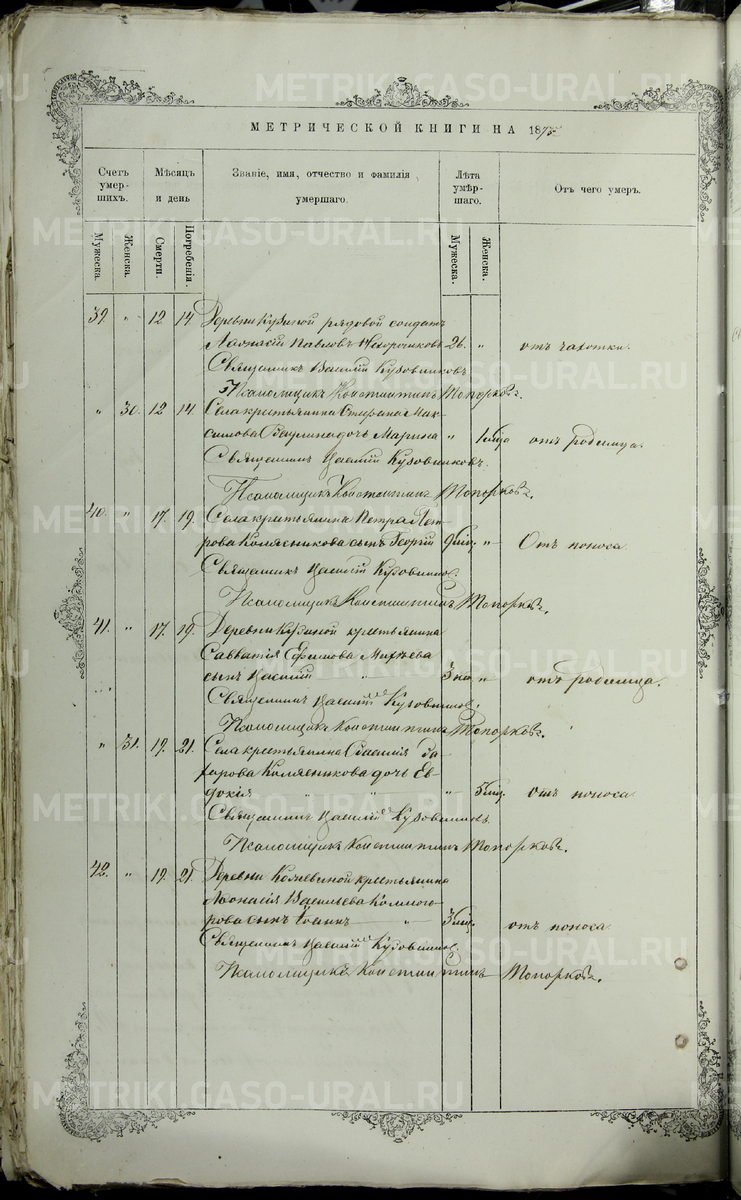 МЕТРИЧЕСКОЙ КНИГИ НА 1875
Счетъ умер-шихъ.
Мѣсяцъ и день
Званіе, имя, отчество и фамилія умершаго.
Лѣта умер-шаго.
Отъ чего умеръ.
Мужеска.
Женска.
Смерти.
Погребенія.
Мужеска.
Женска.
39. " 12 14 Деревни Кузиной рядовой солдатъ
Афонасій Павловъ 26. " отъ чахотки.
Священникъ Василій Кузовниковъ
Псаломщикъ Константинъ Топорковъ.
" 30. 12 14. Села крестьянина Стефана Мак-
симова дочь Марина " 1 мца отъ родимца.
Священникъ Василій Кузовниковъ.
Псаломщикъ Константинъ Топорковъ.
40. " 17. 19. Села крестьянина Петра Пет-
рова Колясникова сынъ Георгій 9 мцъ " Отъ поноса
Священникъ Василій Кузовниковъ.
Псаломщикъ Константинъ Топорковъ.
41. " 17 19. Деревни Кузиной крестьянина
Савватія Ефимова Михѣева
сынъ Василій " 3 " отъ родимца.
Священникъ Василій Кузовниковъ.
Псаломщикъ Константинъ Топорковъ.
" 31. 19. 21. Села крестьянина Василія За-
харова Колясникова дочь Ев-
докія " " " 5 мцъ. отъ поноса
Священникъ Василій Кузовниковъ
Псаломщикъ Константинъ Топорковъ.
42. " 19. 21. Деревни Кожевиной крестьянина
Афонасія Васильева Колмого-
рова сынъ Іоаннъ " 3 мцъ. отъ поноса.
Священникъ Василій Кузовниковъ.
Псаломщикъ Константинъ Топорковъ.
METRIKI.GASO-URAL.RU